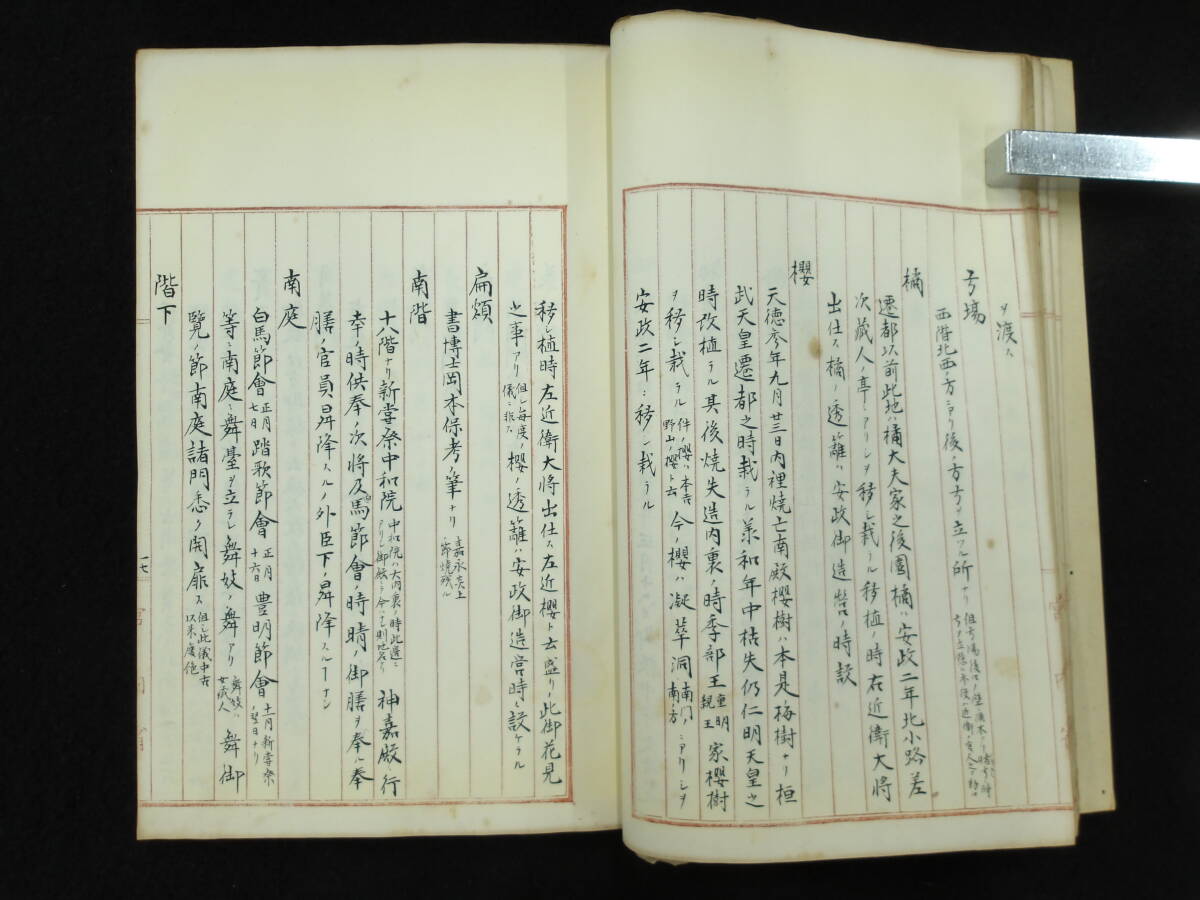 ヲ渡ス
弓場
西階北西ノ方ニアリ後ノ方弓ヲ立ツル所ナリ
橘
遷都以前此地ハ橘大夫家之後園橘ハ安政二年北小路差
次蔵人ノ亭ニアリシヲ移シ栽ラル移植ノ時右近衛大将
出仕ス橘ノ透籬ハ安政御造営ノ時設
櫻
天徳参年九月廿三日内裡焼亡南殿櫻樹ハ本是梅樹ナリ桓
武天皇遷都之時栽ラル羕和年中枯失仍仁明天皇之
時改植ラル其後焼失造内裏ノ時季部王重明親王家櫻樹
ヲ移シ栽ラル件ノ櫻ハ本吉野山ノ櫻ト云今ノ櫻ハ凝華洞南門ノ南ノ方ニアリシヲ
安政二年ニ移シ栽ラル
移シ植時左近衛大将出仕ス左近櫻ト云盛リノ此御花見
之事アリ但シ毎度ノ儀ニ非ス櫻ノ透籬ハ安政御造営時ニ設ケラル
扁額
書博士岡本保考ノ筆ナリ嘉永炎上ノ節焼残ル
南階
十八階ナリ新嘗祭中和院中和院ハ大内裏ノ時此邊ニアリシ御殿ニテ神嘉殿行
幸ノ時供奉ノ次将及馬節會ノ時晴ノ御膳ヲ奉ル奉
膳ノ官員昇降スルノ外臣下ノ昇降スルヿナシ
南庭
白馬節會正月七日踏歌節會正月十六日豊明節會十一月新嘗祭ノ翌日ナリ
等ニ南庭ニ舞臺ヲ立ラレ舞妓ノ舞アリ舞妓ハ女蔵人舞御
覧ノ節南庭諸門悉ク開扉ス但シ此儀中古以来廃絶
階下
十七